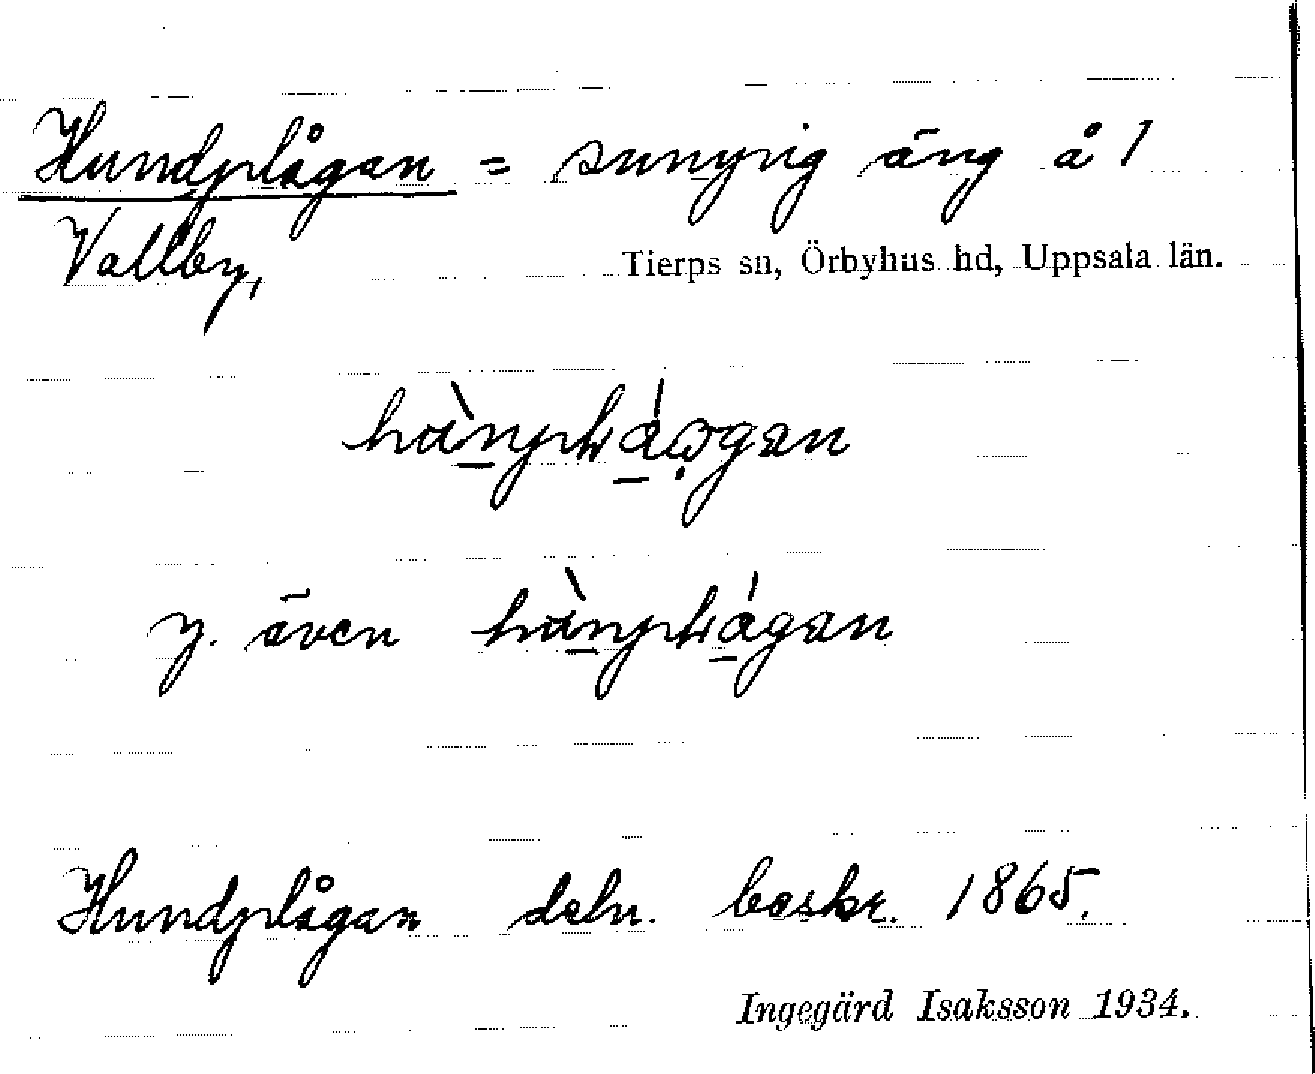 Hundplågan = sumpig äng å 1
Vallby, Tierps sn, Örbyhus hd, Uppsala län.
y. även
Hundplågan deln. beskr. 1865.
Ingegärd Isaksson 1934.